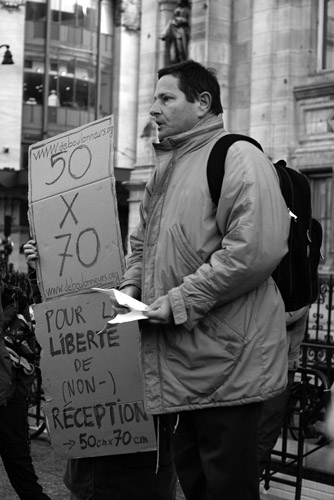 www.deboulonneurs.org
50
X
70
www.deboulonneurs.org
POUR LA
LIBERTÉ
DE
(NON-)
RÉCEPTION
→ 50cm x 70 cm